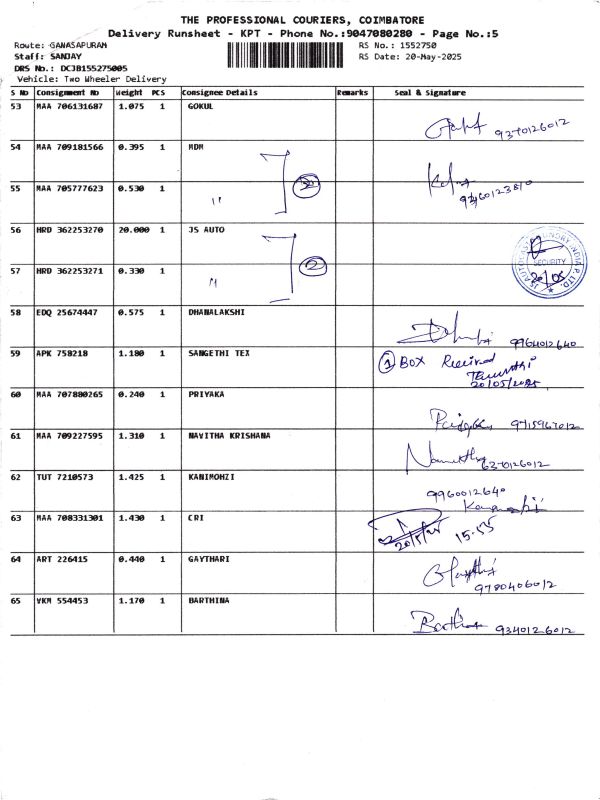 THE PROFESSIONAL COURIERS, COIMBATORE
Delivery Runsheet - KPT - Phone No.:9047080280 - Page No.:5
Route: GANASAPURAM
RS No.: 1552750
Staff: SANJAY
RS Date: 20-May-2025
DRS No.: DCJB155275005
Vehicle: Two Wheeler Delivery
S No Consignment No Weight PCS Consignee Details Remarks Seal & Signature
53 MAA 706131687 1.075 1 GOKUL
9370126012
54 MAA 709181566 0.395 1 MDM
2
55 MAA 705777623 0.530 1 "
56 HRD 362253270 20.000 1 JS AUTO
2
SECURITY
57 HRD 362253271 0.330 1 "
20/05
58 EDQ 25674447 0.575 1 DHANALAKSHI
9964012640
59 APK 758218 1.180 1 SANGETHI TEX
1 BOX Received
20/05/2025
60 MAA 707880265 0.240 1 PRIYAKA
9715967012
61 MAA 709227595 1.310 1 NAVITHA KRISHANA
6370126012
62 TUT 7210573 1.425 1 KANIMOHZI
9960012640
63 MAA 708331301 1.430 1 CRI
20/5/25 15.55
64 ART 226415 0.440 1 GAYTHARI
9780406012
65 VKM 554453 1.170 1 BARTHINA
9340126012